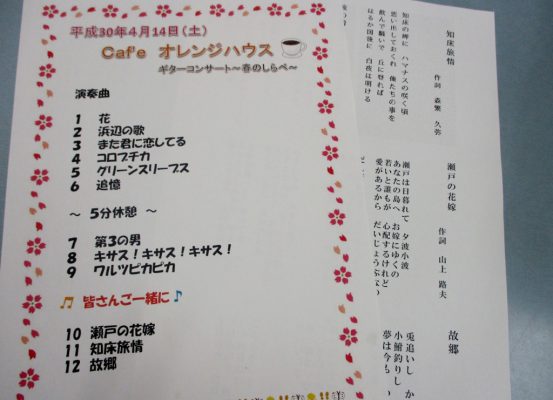 平成30年4月14日(土)
Caf'e オレンジハウス
ギターコンサート～春のしらべ～
演奏曲
1 花
2 浜辺の歌
3 また君に恋してる
4 コロブチカ
5 グリーンスリーブス
6 追憶
～ 5分休憩 ～
7 第3の男
8 キサス！キサス！キサス！
9 ワルツピカピカ
皆さんご一緒に
10 瀬戸の花嫁
11 知床旅情
12 故郷
知床旅情
作詞 森繁 久弥
知床の岬に ハマナスの咲く頃
思い出しておくれ 俺たちの事を
飲んで騒いで 丘に登れば
はるか国後に 白夜は明ける
瀬戸の花嫁
作詞 山上 路夫
瀬戸は日暮れて 夕波小波
あなたの島へ お嫁にゆくの
若いと誰もが 心配するけれど
愛があるから だいじょうぶなの
故郷
兎追いし か
小鮒釣りし
夢は今も